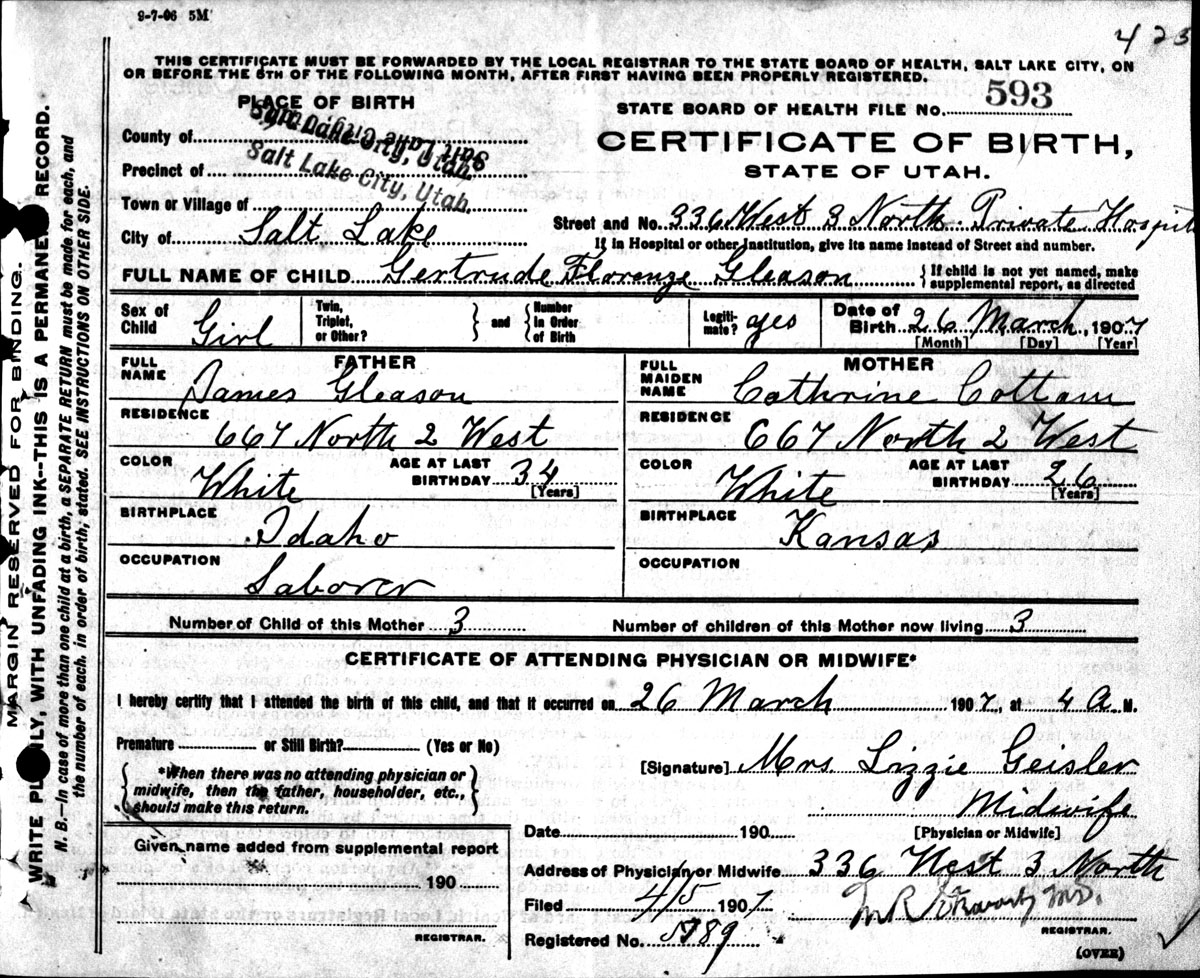 9-7-06 5M
423
THIS CERTIFICATE MUST BE FORWARDED BY THE LOCAL REGISTRAR TO THE STATE BOARD OF HEALTH, SALT LAKE CITY, ON
OR BEFORE THE 5TH OF THE FOLLOWING MONTH, AFTER FIRST HAVING BEEN PROPERLY REGISTERED.
PLACE OF BIRTH
STATE BOARD OF HEALTH FILE No. 593
County of Salt Lake City, Utah
CERTIFICATE OF BIRTH,
Precinct of Salt Lake City, Utah.
STATE OF UTAH.
Town or Village of
Street and No. 336 West 3 North Private Hospit
City of Salt Lake
If in Hospital or other Institution, give its name instead of Street and number.
FULL NAME OF CHILD Gertrude Florenze Gleason
{ If child is not yet named, make
supplemental report, as directed
Sex of Child Girl
Twin, Triplet, or Other? } and { Number in Order of Birth
Legiti-mate? yes
Date of Birth 26 March, 1907
[Month] [Day] [Year]
FATHER
FULL NAME James Gleason
RESIDENCE 667 North 2 West
COLOR White
AGE AT LAST BIRTHDAY 34 [Years]
BIRTHPLACE Idaho
OCCUPATION Laborer
MOTHER
FULL MAIDEN NAME Cathrine Cottam
RESIDENCE 667 North 2 West
COLOR White
AGE AT LAST BIRTHDAY 26 [Years]
BIRTHPLACE Kansas
OCCUPATION
Number of Child of this Mother 3
Number of children of this Mother now living 3
CERTIFICATE OF ATTENDING PHYSICIAN OR MIDWIFE*
I hereby certify that I attended the birth of this child, and that it occurred on 26 March 1907, at 4 A. M.
Premature or Still Birth? (Yes or No)
{ *When there was no attending physician or
midwife, then the father, householder, etc.,
should make this return. }
[Signature] Mrs. Lizzie Geisler
Midwife
[Physician or Midwife]
Date 190
Given name added from supplemental report
190
REGISTRAR.
Address of Physician or Midwife 336 West 3 North
Filed 4/5 1907
REGISTRAR.
Registered No. 5789
(OVER)
MARGIN RESERVED FOR BINDING.
WRITE PLAINLY, WITH UNFADING INK--THIS IS A PERMANENT RECORD.
N. B.--In case of more than one child at a birth, a SEPARATE RETURN must be made for each, and
the number of each, in order of birth, stated. SEE INSTRUCTIONS ON OTHER SIDE.